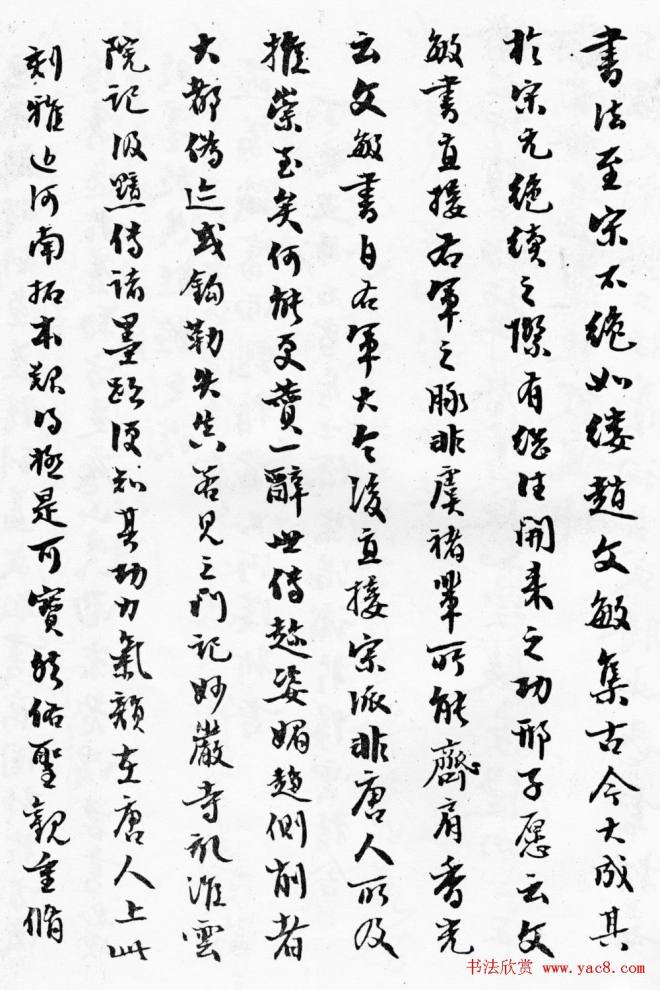 書法至宋不絶如缕趙文敏集古今大成其
於宋元絶續之際有繼往開来之功邢子愿云文
敏書直接右軍之脉非虞褚輩所能齊肩香光
云文敏書自右軍大令後直接宗派非唐人所及
推崇至矣何能更贊一辭世傳趙姿媚趙側削者
大都偽迹或鈎勒失真若見三門記妙嚴寺記淮雲
院記汲黯傳諸墨跡便知其功力氣韻在唐人上此
刻雅近河南拓本越明極是可寶然佑聖觀重脩
书法欣赏 www.yac8.com